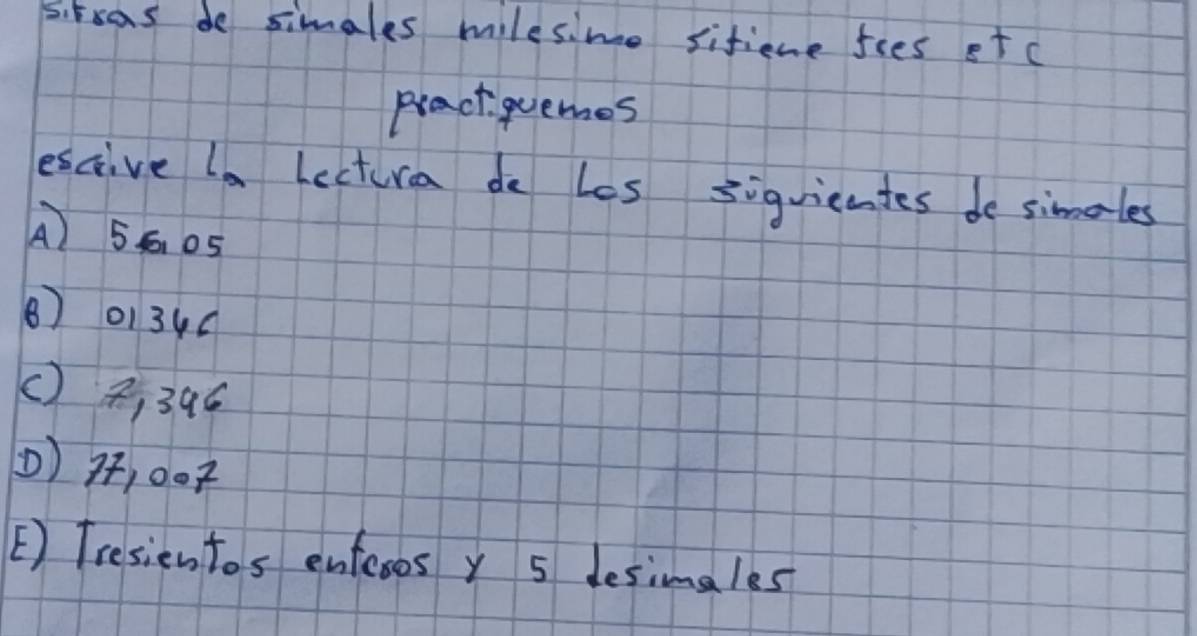 sifras de simales milesimo sitiene tres etc
practiquemos
escrive la Lectura de Los siguientes de simales
A) 56,05
B) 0,346
C) 7,396
D) 77,007
E) Tresientos enteros y 5 desimales